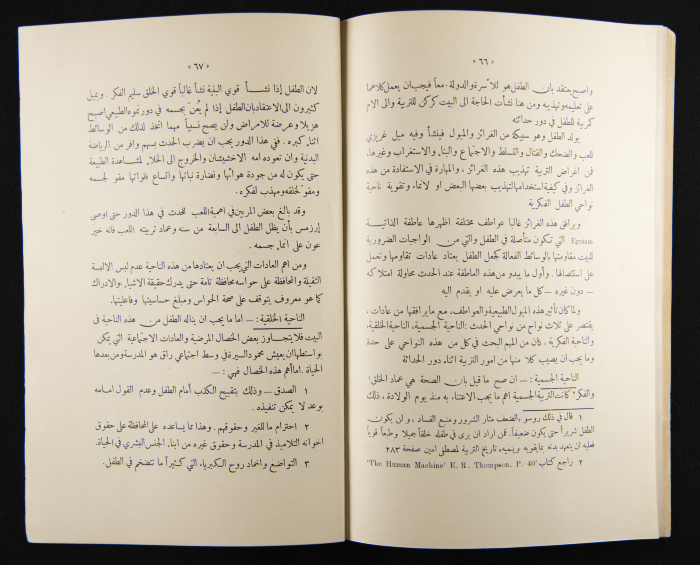 « ٦٦ »
واصح يعتقد بان الطفل هو للأسرة والدولة معاً فيجب ان يعمل كلاهما
على تعليمه وتهذيبه ومن هنا نشأت الحاجة الى البيت كركن للتربية والى الام
كربية للطفل في دور حداثته
يولد الطفل وهو سبيكة من الغرائز والميول فينشأ وفيه ميل غريزي
للعب والضحك والقتال والتسلط والاجتماع والبناء والاستغراب وغيرها.
فمن اغراض التربية تهذيب هذه الغرائز. والمهارة في الاستفادة من هذه
الغرائز وفي كيفية استخدامها لتهذيب بعضها البعض او لانماء وتقوية ناحية
نواحي الطفل الفكرية
ويرافق هذه الغرائز غالبا عواطف مختلفة اظهرها عاطفة الذاتية
Egoism التي تكون متأصلة في الطفل والتي من الواجبات الضرورية
للبيت مقاومتها بالوسائط الفعالة كجعل الطفل يعتاد عادات تقاومها وتعمل
على استئصالها. وأول ما يبدو من هذه العاطفة عند الحدث محاولة امتلاكه
— دون غيره — كل ما يعرض عليه او يقدم اليه
ولما كان تأثير هذه الميول الطبيعية والعواطف، مع ما يرافقها من عادات،
يقتصر على ثلاث نواح من نواحي الحدث: الناحية الجسمية، الناحية الخلقية،
والناحية الفكرية، كان من المهم البحث في كل من هذه النواحي على حدة
وما يجب ان يصيب كلا منها من امور التربية اثناء دور الحداثة
الناحية الجسمية: — ان صح ما قيل بان الصحة هي عماد الخلق ١
والفكر ٢ كانت التربية الجسمية اهم ما يجب الاعتناء به منذ يوم الولادة، ذلك
١ قال في ذلك روسو «الضعف مثار الشرور ومنبع الفساد، ولن يكون
الطفل شريراً حتى يكون ضعيفاً. فمن اراد ان يرى في طفله خلقاً جميلا وطبعاً قوياً
فعليه ان يتعهد بدنه بما يقويه وينميه» تاريخ التربية لمصطفى امين صفحة ٢٨٣
٢ راجع كتاب 'The Human Machine' E. R. Thompson. P. 40
« ٦٧ »
لان الطفل إذا نشأ قوي البنية نشأ غالباً قوي الخلق سليم الفكر. ويميل
كثيرون الى الاعتقاد بان الطفل إذا لم يُعنَ بجسمه في دور نموه الطبيعي اصبح
هزيلا وعرضة للامراض ولن يصح نسبياً مهما اتخذ لذلك من الوسائط
اثناء كبره. ففي هذا الدور يجب ان يضرب الحدث بسهم وافر من الرياضة
البدنية وان تعوده امه الاخشيشان والخروج الى الخلاء لمشاهدة الطبيعة
حتى يكون له من جودة هوائها ونضارة نباتها واتساع فلواتها مقوٍ لجسمه
ومقوٍ لخلقه ومهذب لفكره.
وقد بالغ بعض المربين في اهمية اللعب للحدث في هذا الدور حتى اوصى
إرزمس بأن يظل الطفل الى السابعة من سنه وعماد تربيته اللعب فانه خير
عون على انماء جسمه.
ومن اهم العادات التي يجب ان يعتادها من هذه الناحية عدم لبس الالبسة
الثقيلة والمحافظة على حواسه محافظة تامة حتى يدرك حقيقة الاشياء، والادراك
كما هو معروف يتوقف على صحة الحواس ومبلغ حساسيتها وفاعليتها.
الناحية الخلقية: — اما ما يجب ان يناله الطفل من هذه الناحية في
البيت فلا يتجاوز بعض الخصال المرضية والعادات الاجتماعية التي يمكن
بواسطتها ان يعيش محمود السيرة في وسط اجتماعي راق هو المدرسة ومن بعدها
الحياة. اما أهم هذه الخصال فهي: —
١ الصدق — وذلك بتقبيح الكذب أمام الطفل وعدم القول امامه
بوعد لا يمكن تنفيذه.
٢ احترام ما للغير وحقوقهم. وهذا مما يساعده على المحافظة على حقوق
اخوانه التلاميذ في المدرسة وحقوق غيره من ابناء الجنس البشري في الحياة.
٣ التواضع واخماد روح الكبرياء التي كثيراً ما تتضخم في الطفل.